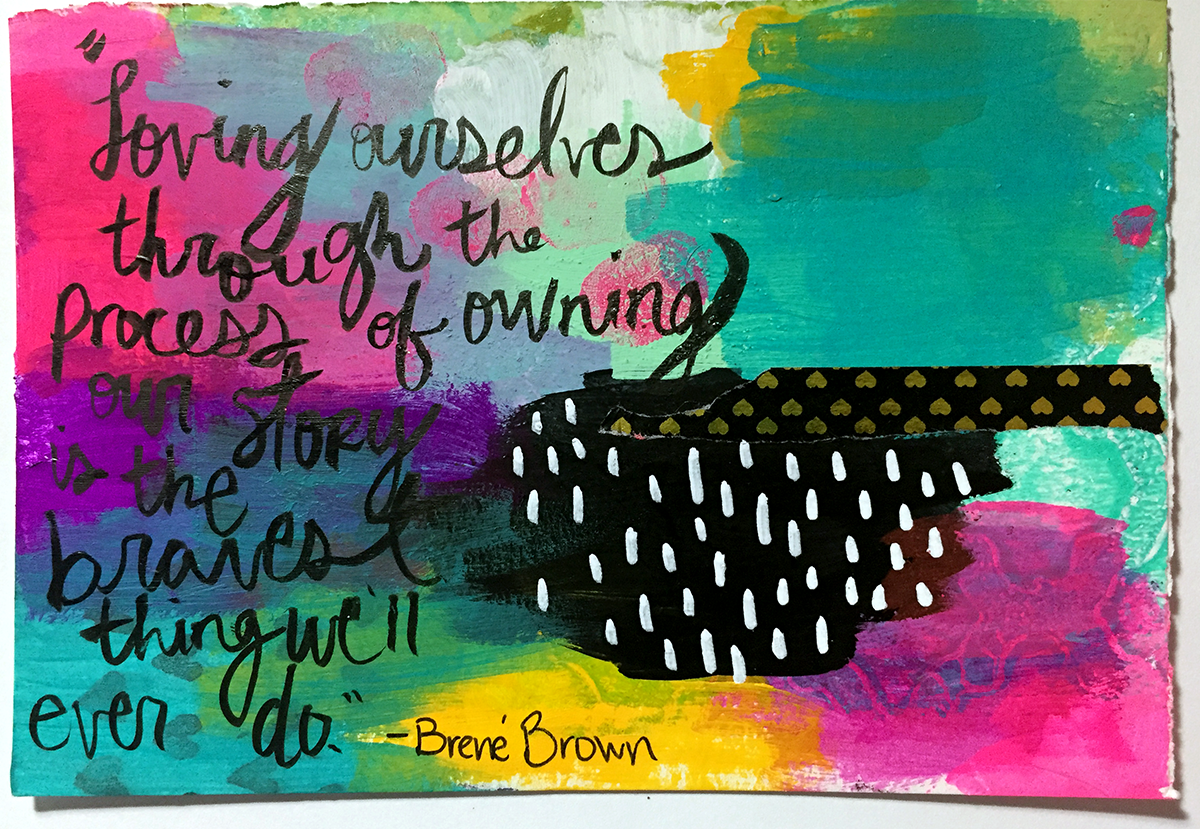 "Loving ourselves
through the
process of owning
our story
is the
bravest
thing we'll
ever do."
-Brené Brown